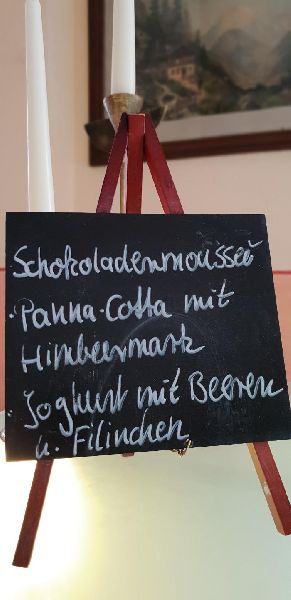 Schokoladenmousseé
· Panna-Cotta mit
Himbeermark
· Joghurt mit Beeren
u. Filinchen